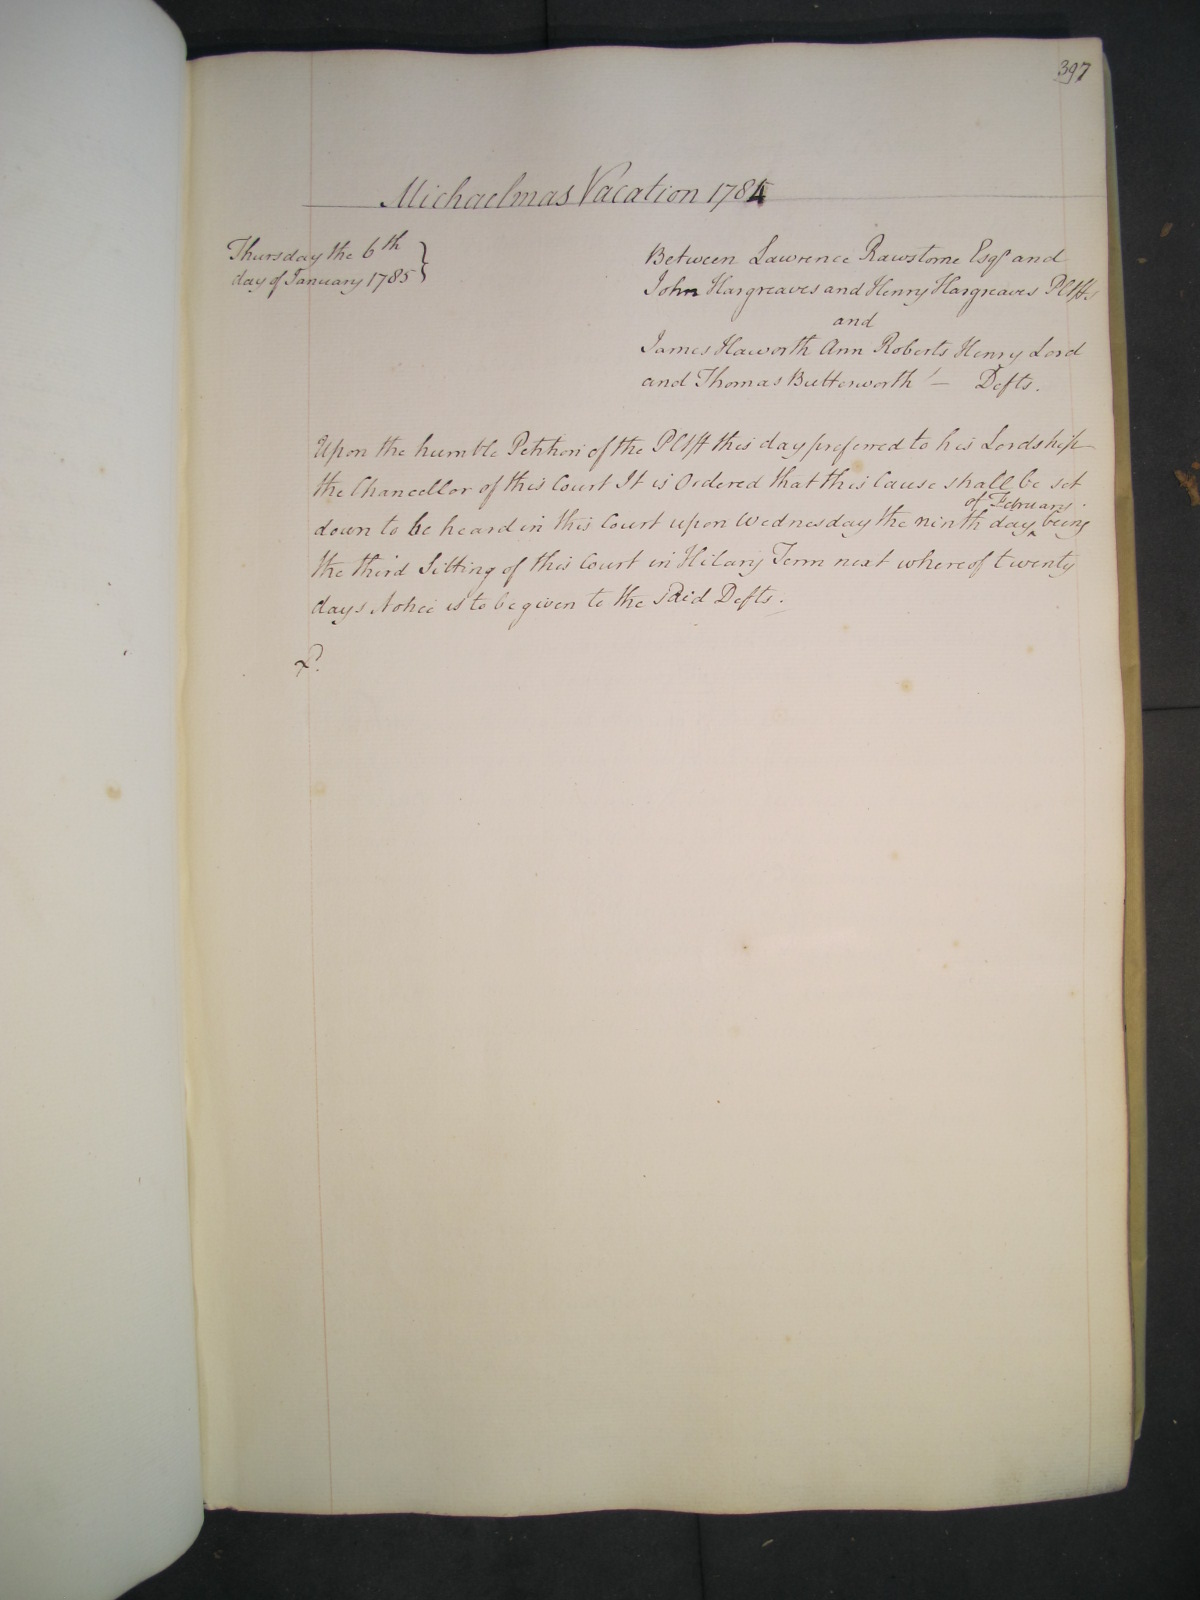 397
Michaelmas Vacation 1784
Thursday the 6th
day of January 1785
Between Lawrence Rawstorne Esqr and
John Hargreaves and Henry Hargreaves Pltffs
and
James Haworth Ann Roberts Henry Lord
and Thomas Butterworth — Defts.
Upon the humble Petition of the Pltff this day preferred to his Lordship
the Chancellor of this Court It is Ordered that this Cause shall be set
of February
down to be heard in this Court upon Wednesday the ninth day ‸ being
the third Sitting of this Court in Hilary Term next whereof twenty
days Notice is to be given to the said Defts.